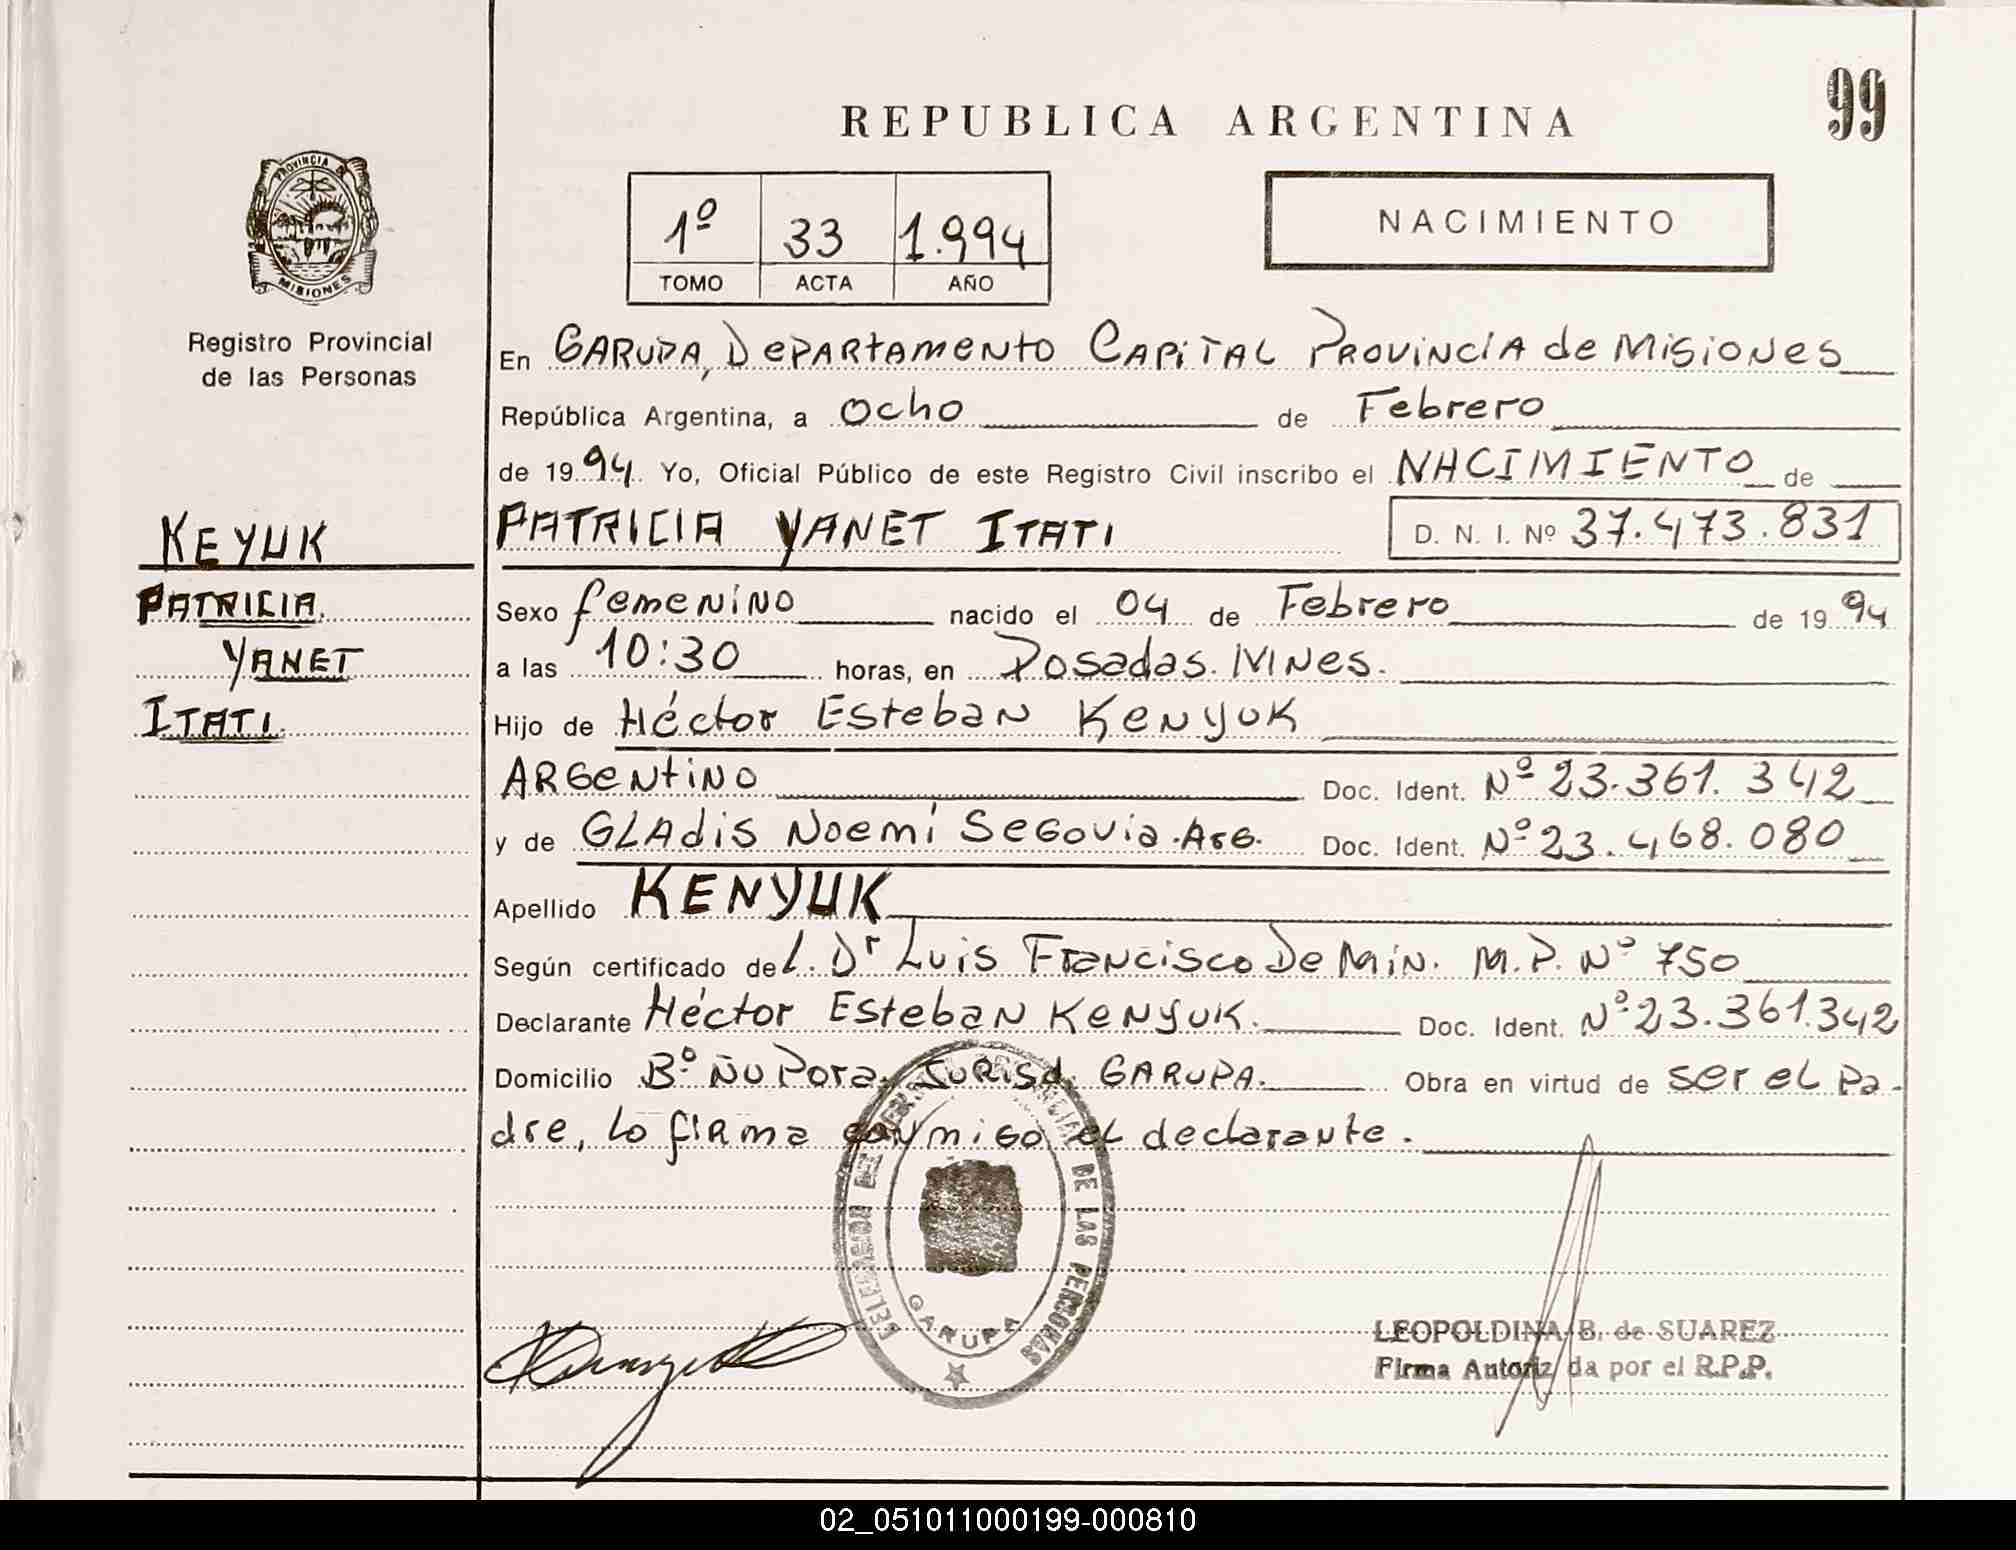 99
REPUBLICA ARGENTINA
PROVINCIA DE
MISIONES
1º 33 1.994
TOMO ACTA AÑO
NACIMIENTO
Registro Provincial
de las Personas
En GARUPA, DEPARtAmeNtO CAPiTAL PROViNCiA de MiSiONeS
República Argentina, a Ocho de Febrero
de 1994. Yo, Oficial Público de este Registro Civil inscribo el NACIMIENTO de
KEYUK
PATRICIA YANET ITATI D. N. I. Nº 37.473.831
PATRICIA.
Sexo femeNiNO nacido el 04 de Febrero de 1994
YANET
a las 10:30 horas, en Posadas. MNes.
ITATI.
Hijo de Héctor Esteban KeNyuK
ARGeNtiNO Doc. Ident. Nº 23.361.342
y de GLAdiS NOemí SeGOVia. ARG. Doc. Ident. Nº 23.468.080
Apellido KENYUK
Según certificado del. Dr Luis Francisco De Min. M.P. Nº 750
Declarante Héctor Esteban KeNyuK. Doc. Ident. Nº 23.361.342
Domicilio Bº Ñu Pora, JURiSd. GARUPA. Obra en virtud de ser el Pa-
dre, lo firma conmigo el declarante.
DELEGACION DEL REGISTRO PROVINCIAL DE LAS PERSONAS
GARUPA
LEOPOLDINA B. de SUAREZ
Firma Autoriz da por el R.P.P.
02_051011000199-000810